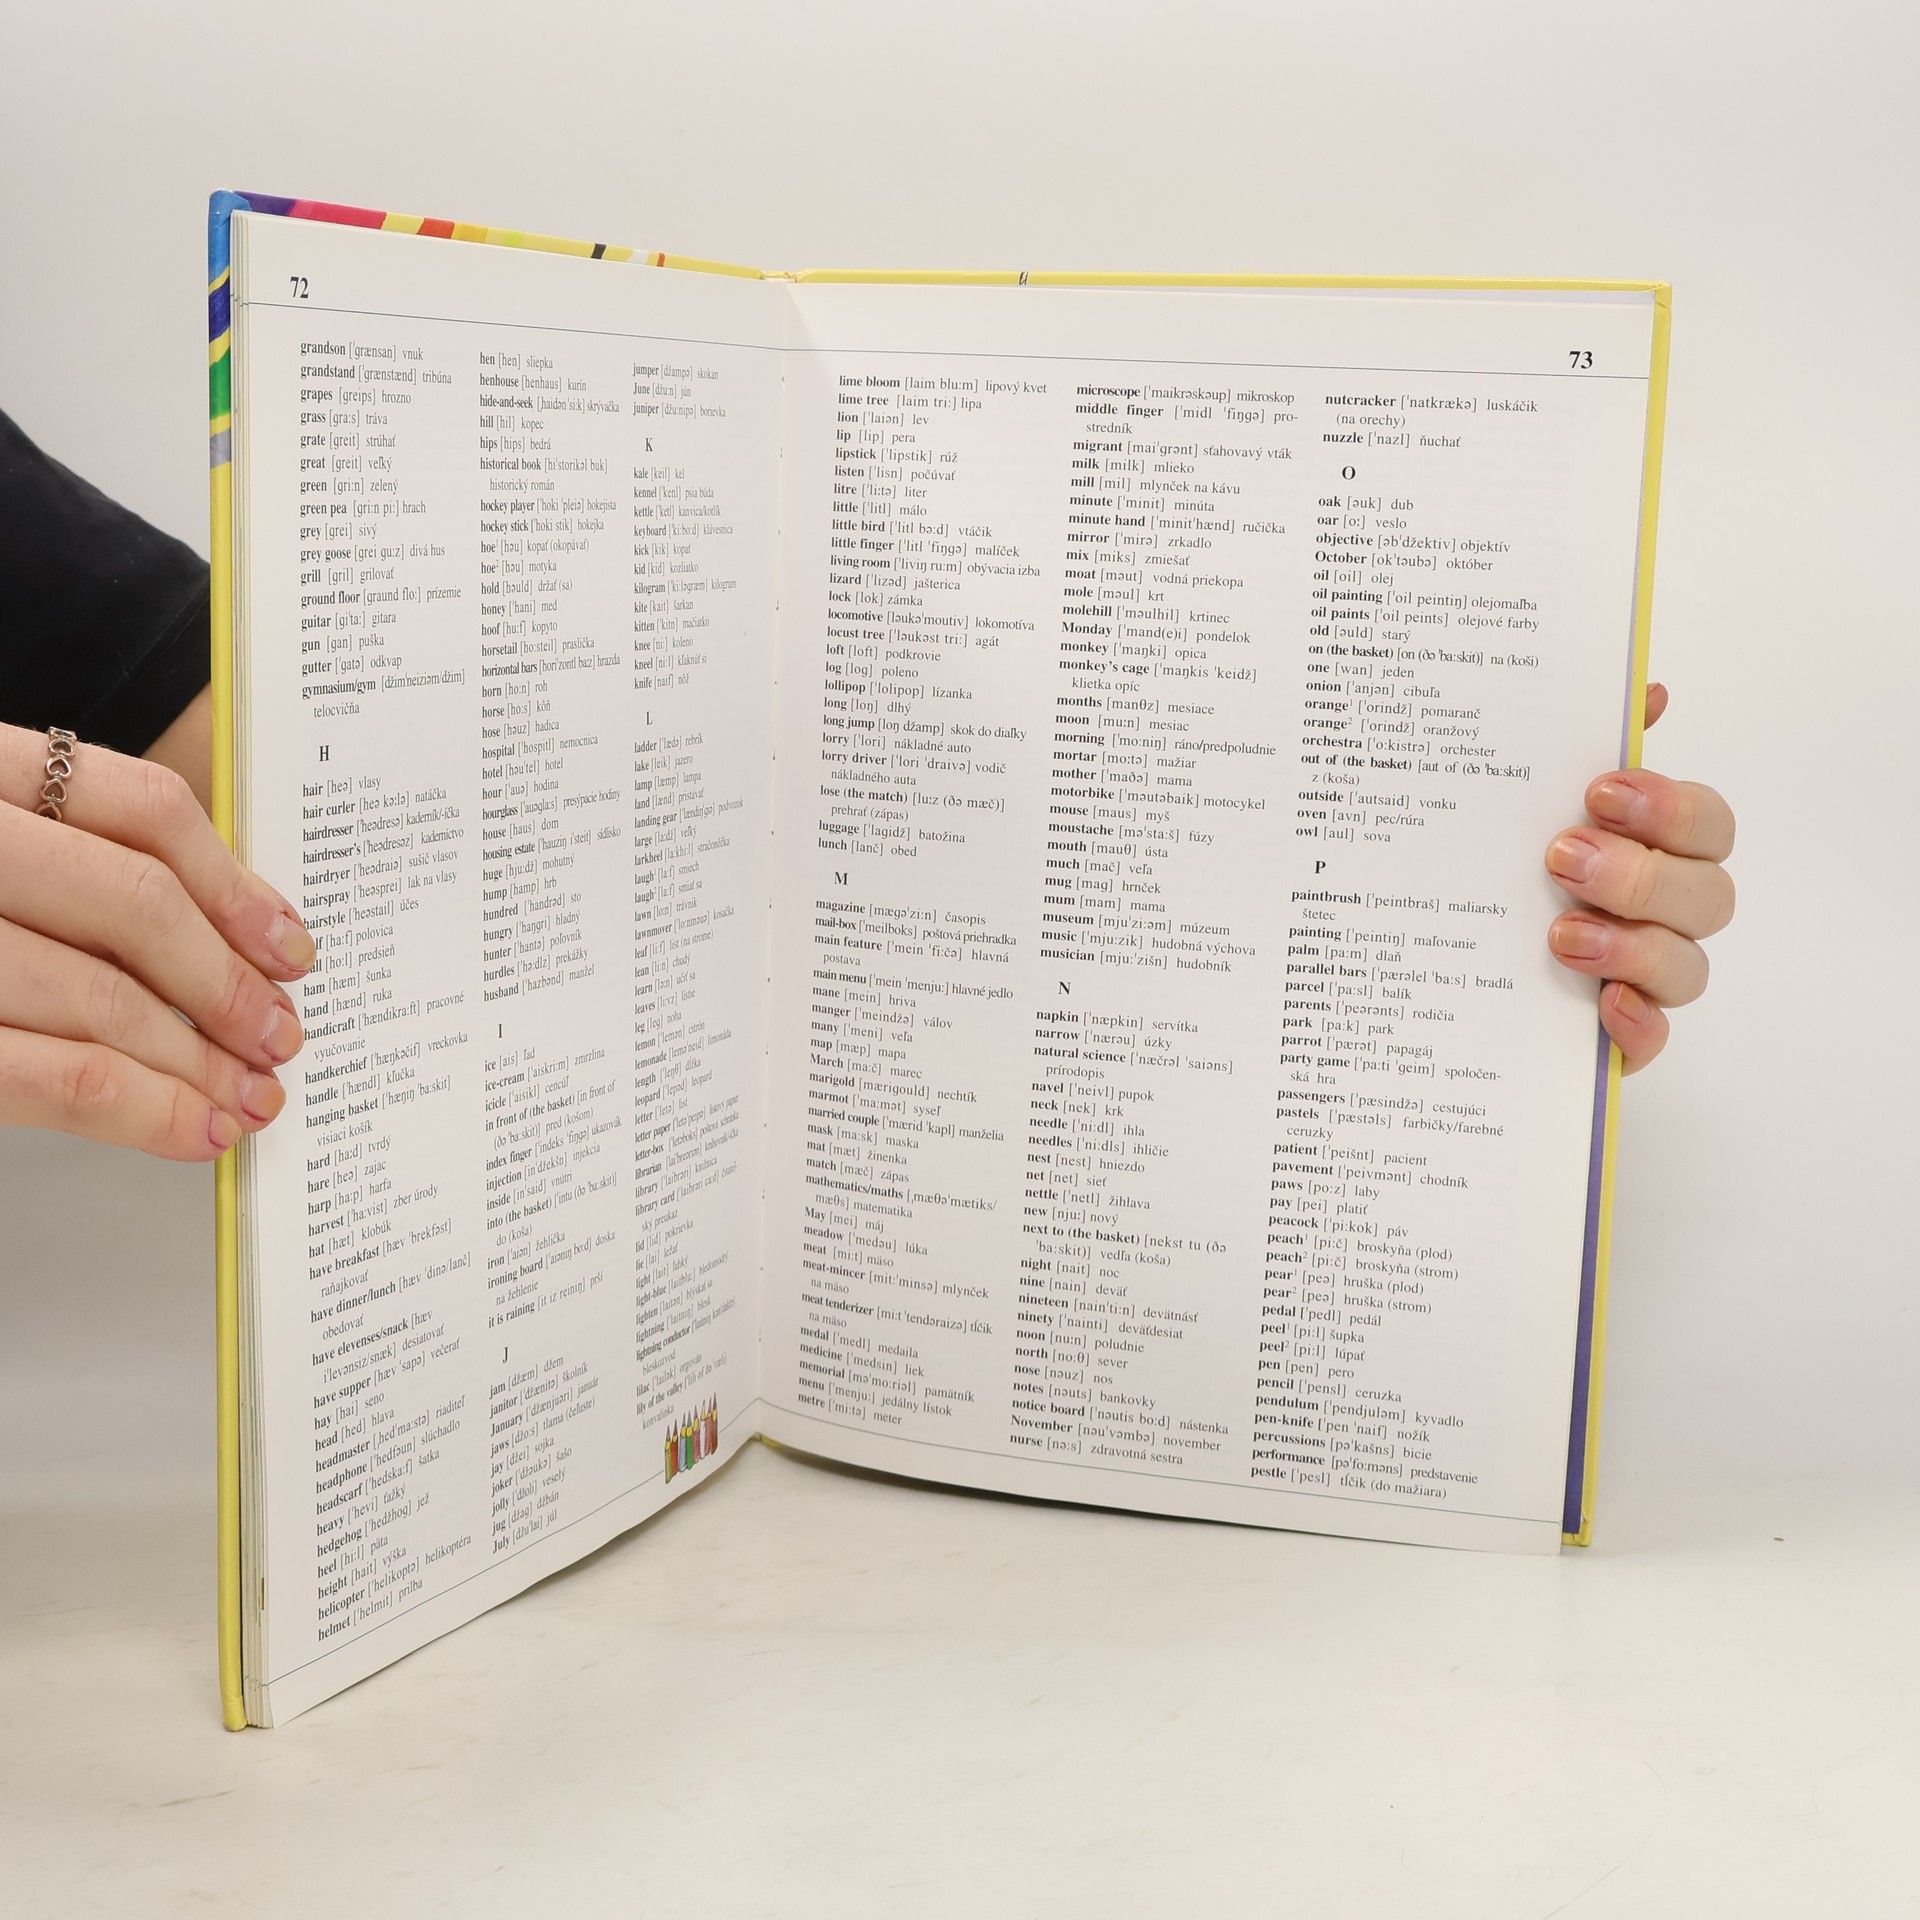 72
grandson [ˈgrænsan] vnuk
grandstand [ˈgrænstænd] tribúna
grapes [greips] hrozno
grass [gra:s] tráva
grate [greit] strúhať
great [greit] veľký
green [gri:n] zelený
green pea [gri:n pi:] hrach
grey [grei] sivý
grey goose [grei gu:z] divá hus
grill [gril] grilovať
ground floor [graund flo:] prízemie
guitar [giˈta:] gitara
gun [gan] puška
gutter [ˈgatə] odkvap
gymnasium/gym [džimˈneiziəm/džim]
telocvičňa
H
hair [heə] vlasy
hair curler [heə kə:lə] natáčka
hairdresser [ˈheədresə] kaderník/-íčka
hairdresser's [ˈheədresəz] kaderníctvo
hairdryer [ˈheədraiə] sušič vlasov
hairspray [ˈheəsprei] lak na vlasy
hairstyle [ˈheəstail] účes
lf [ha:f] polovica
ll [ho:l] predsieň
ham [hæm] šunka
hand [hænd] ruka
handicraft [ˈhændikra:ft] pracovné
vyučovanie
handkerchief [ˈhæŋkəčif] vreckovka
handle [ˈhændl] kľučka
hanging basket [ˈhæŋiŋ ˈba:skit]
visiaci košík
hard [ha:d] tvrdý
hare [heə] zajac
harp [ha:p] harfa
harvest [ˈha:vist] zber úrody
hat [hæt] klobúk
have breakfast [hæv ˈbrekfəst]
raňajkovať
have dinner/lunch [hæv ˈdinə/lanč]
obedovať
have elevenses/snack [hæv
iˈlevənsiz/snæk] desiatovať
have supper [hæv ˈsapə] večerať
hay [hai] seno
head [hed] hlava
headmaster [ˌhedˈma:stə] riaditeľ
headphone [ˈhedfəun] slúchadlo
headscarf [ˈhedska:f] šatka
heavy [ˈhevi] ťažký
hedgehog [ˈhedžhog] jež
heel [hi:l] päta
height [hait] výška
helicopter [ˈhelikoptə] helikoptéra
helmet [ˈhelmit] prilba
hen [hen] sliepka
henhouse [henhaus] kurín
hide-and-seek [ˌhaidənˈsi:k] skrývačka
hill [hil] kopec
hips [hips] bedrá
historical book [hiˈstorikəl buk]
historický román
hockey player [ˈhoki ˈpleiə] hokejista
hockey stick [ˈhoki stik] hokejka
hoe¹ [həu] kopať (okopávať)
hoe² [həu] motyka
hold [həuld] držať (sa)
honey [ˈhani] med
hoof [hu:f] kopyto
horsetail [ho:steil] praslička
horizontal bars [horiˈzontl baz] hrazda
horn [ho:n] roh
horse [ho:s] kôň
hose [həuz] hadica
hospital [ˈhospitl] nemocnica
hotel [həuˈtel] hotel
hour [ˈauə] hodina
hourglass [ˈauəgla:s] presýpacie hodiny
house [haus] dom
housing estate [ˈhauziŋ iˈsteit] sídlisko
huge [hju:dž] mohutný
hump [hamp] hrb
hundred [ˈhandrəd] sto
hungry [ˈhaŋgri] hladný
hunter [ˈhantə] poľovník
hurdles [ˈhə:dlz] prekážky
husband [ˈhazbənd] manžel
I
ice [ais] ľad
ice-cream [ˈaiskri:m] zmrzlina
icicle [ˈaisikl] cencúľ
in front of (the basket) [in front of
(ðə ˈba:skit)] pred (košom)
index finger [ˈindeks ˈfiŋgə] ukazovák
injection [inˈdžekšn] injekcia
inside [inˈsaid] vnútri
into (the basket) [ˈintu (ðə ˈba:skit)]
do (koša)
iron [ˈaiən] žehlička
ironing board [ˈaiəniŋ bo:d] doska
na žehlenie
it is raining [it iz reiniŋ] prší
J
jam [džæm] džem
janitor [ˈdžænitə] školník
January [ˈdžænjuəri] január
jaws [džo:s] tlama (čeľuste)
jay [džei] sojka
joker [ˈdžəukə] šašo
jolly [ˈdžoli] veselý
jug [džag] džbán
July [džuˈlai] júl
jumper [džampə] skokan
June [džu:n] jún
juniper [džu:nipə] borievka
K
kale [keil] kel
kennel [ˈkenl] psia búda
kettle [ˈketl] kanvica/kotlík
keyboard [ˈki:bo:d] klávesnica
kick [kik] kopať
kid [kid] kozliatko
kilogram [ˈki:ləgræm] kilogram
kite [kait] šarkan
kitten [ˈkitn] mačiatko
knee [ni:] koleno
kneel [ni:l] kľaknúť si
knife [naif] nôž
L
ladder [ˈlædə] rebrík
lake [leik] jazero
lamp [læmp] lampa
land [lænd] pristávať
landing gear [ˈlændiŋˈgiə] podvozok
large [la:dž] veľký
larkheel [la:khi:l] stračonôžka
laugh¹ [la:f] smiech
laugh² [la:f] smiať sa
lawn [lo:n] trávnik
lawnmover [ˈlo:nməuə] kosačka
leaf [li:f] list (na strome)
lean [li:n] chudý
learn [lə:n] učiť sa
leaves [li:vz] lístie
leg [leg] noha
lemon [ˈlemən] citrón
lemonade [leməˈneid] limonáda
length [ˈleŋθ] dĺžka
leopard [ˈlepəd] leopard
letter [ˈletə] list
letter paper [ˈletəˈpeipə] listový papier
letter-box [ˈletəboks] poštová schránka
librarian [laiˈbreəriən] knihovník/-íčka
library [ˈlaibrəri] knižnica
library card [ˈlaibrəri ca:d] čitateľ-
ský preukaz
lid [lid] pokrievka
lie [lai] ležať
light [lait] ľahký
light-blue [laitblu:] bledomodrý
lighten [laitən] blýskať sa
lightning [ˈlaitniŋ] blesk
lightning conductor
bleskozvod
lilac [ˈlailək] orgován
lily of the valley [ˈlili of ðə ˈvæli]
konvalinka
73
lime bloom [laim blu:m] lipový kvet
lime tree [laim tri:] lipa
lion [ˈlaiən] lev
lip [lip] pera
lipstick [ˈlipstik] rúž
listen [ˈlisn] počúvať
litre [ˈli:tə] liter
little [ˈlitl] málo
little bird [ˈlitl bə:d] vtáčik
little finger [ˈlitl ˈfiŋgə] malíček
living room [ˈliviŋ ru:m] obývacia izba
lizard [ˈlizəd] jašterica
lock [lok] zámka
locomotive [ləukəˈmoutiv] lokomotíva
locust tree [ˈləukəst tri:] agát
loft [loft] podkrovie
log [log] poleno
lollipop [ˈlolipop] lízanka
long [loŋ] dlhý
long jump [loŋ džamp] skok do diaľky
lorry [ˈlori] nákladné auto
lorry driver [ˈlori ˈdraivə] vodič
nákladného auta
lose (the match) [lu:z (ðə mæč)]
prehrať (zápas)
luggage [ˈlagidž] batožina
lunch [lanč] obed
M
magazine [mægəˈzi:n] časopis
mail-box [ˈmeilboks] poštová priehradka
main feature [ˈmein ˈfi:čə] hlavná
postava
main menu [ˈmein ˈmenju:] hlavné jedlo
mane [mein] hriva
manger [ˈmeindžə] válov
many [ˈmeni] veľa
map [mæp] mapa
March [ma:č] marec
marigold [mærigould] nechtík
marmot [ˈma:mət] syseľ
married couple [ˈmærid ˈkapl] manželia
mask [ma:sk] maska
mat [mæt] žinenka
match [mæč] zápas
mathematics/maths [ˌmæθəˈmætiks/
mæθs] matematika
May [mei] máj
meadow [ˈmedəu] lúka
meat [mi:t] mäso
meat-mincer [mit:ˈminsə] mlynček
na mäso
meat tenderizer [mi:t ˈtendəraizə] tĺčik
na mäso
medal [ˈmedl] medaila
medicine [ˈmedsin] liek
memorial [məˈmo:riəl] pamätník
menu [ˈmenju:] jedálny lístok
metre [ˈmi:tə] meter
microscope [ˈmaikrəskəup] mikroskop
middle finger [ˈmidl ˈfiŋgə] pro-
stredník
migrant [maiˈgrənt] sťahovavý vták
milk [milk] mlieko
mill [mil] mlynček na kávu
minute [ˈminit] minúta
minute hand [ˈminitˈhænd] ručička
mirror [ˈmirə] zrkadlo
mix [miks] zmiešať
moat [məut] vodná priekopa
mole [məul] krt
molehill [ˈməulhil] krtinec
Monday [ˈmand(e)i] pondelok
monkey [ˈmaŋki] opica
monkey's cage [ˈmaŋkis ˈkeidž]
klietka opíc
months [manθz] mesiace
moon [mu:n] mesiac
morning [ˈmo:niŋ] ráno/predpoludnie
mortar [mo:tə] mažiar
mother [ˈmaðə] mama
motorbike [ˈməutəbaik] motocykel
mouse [maus] myš
moustache [məˈsta:š] fúzy
mouth [mauθ] ústa
much [mač] veľa
mug [mag] hrnček
mum [mam] mama
museum [mjuˈzi:əm] múzeum
music [ˈmju:zik] hudobná výchova
musician [mju:ˈzišn] hudobník
N
napkin [ˈnæpkin] servítka
narrow [ˈnærəu] úzky
natural science [ˈnæčrəl ˈsaiəns]
prírodopis
navel [ˈneivl] pupok
neck [nek] krk
needle [ˈni:dl] ihla
needles [ˈni:dls] ihličie
nest [nest] hniezdo
net [net] sieť
nettle [ˈnetl] žihlava
new [nju:] nový
next to (the basket) [nekst tu (ðə
ˈba:skit)] vedľa (koša)
night [nait] noc
nine [nain] deväť
nineteen [nainˈti:n] devätnásť
ninety [ˈnainti] deväťdesiat
noon [nu:n] poludnie
north [no:θ] sever
nose [nəuz] nos
notes [nəuts] bankovky
notice board [ˈnəutis bo:d] nástenka
November [nəuˈvəmbə] november
nurse [nə:s] zdravotná sestra
nutcracker [ˈnatkrækə] luskáčik
(na orechy)
nuzzle [ˈnazl] ňuchať
O
oak [əuk] dub
oar [o:] veslo
objective [əbˈdžektiv] objektív
October [okˈtəubə] október
oil [oil] olej
oil painting [ˈoil peintiŋ] olejomaľba
oil paints [ˈoil peints] olejové farby
old [əuld] starý
on (the basket) [on (ðə ˈba:skit)] na (koši)
one [wan] jeden
onion [ˈanjən] cibuľa
orange¹ [ˈorindž] pomaranč
orange² [ˈorindž] oranžový
orchestra [ˈo:kistrə] orchester
out of (the basket) [aut of (ðə ˈba:skit)]
z (koša)
outside [ˈautsaid] vonku
oven [avn] pec/rúra
owl [aul] sova
P
paintbrush [ˈpeintbraš] maliarsky
štetec
painting [ˈpeintiŋ] maľovanie
palm [pa:m] dlaň
parallel bars [ˈpærəlel ˈba:s] bradlá
parcel [ˈpa:sl] balík
parents [ˈpeərənts] rodičia
park [pa:k] park
parrot [ˈpærət] papagáj
party game [ˈpa:ti ˈgeim] spoločen-
ská hra
passengers [ˈpæsindžə] cestujúci
pastels [ˈpæstəls] farbičky/farebné
ceruzky
patient [ˈpeišnt] pacient
pavement [ˈpeivmənt] chodník
paws [po:z] laby
pay [pei] platiť
peacock [ˈpi:kok] páv
peach¹ [pi:č] broskyňa (plod)
peach² [pi:č] broskyňa (strom)
pear¹ [peə] hruška (plod)
pear² [peə] hruška (strom)
pedal [ˈpedl] pedál
peel¹ [pi:l] šupka
peel² [pi:l] lúpať
pen [pen] pero
pencil [ˈpensl] ceruzka
pendulum [ˈpendjuləm] kyvadlo
pen-knife [ˈpen ˈnaif] nožík
percussions [pəˈkašns] bicie
performance [pəˈfo:məns] predstavenie
pestle [ˈpesl] tĺčik (do mažiara)